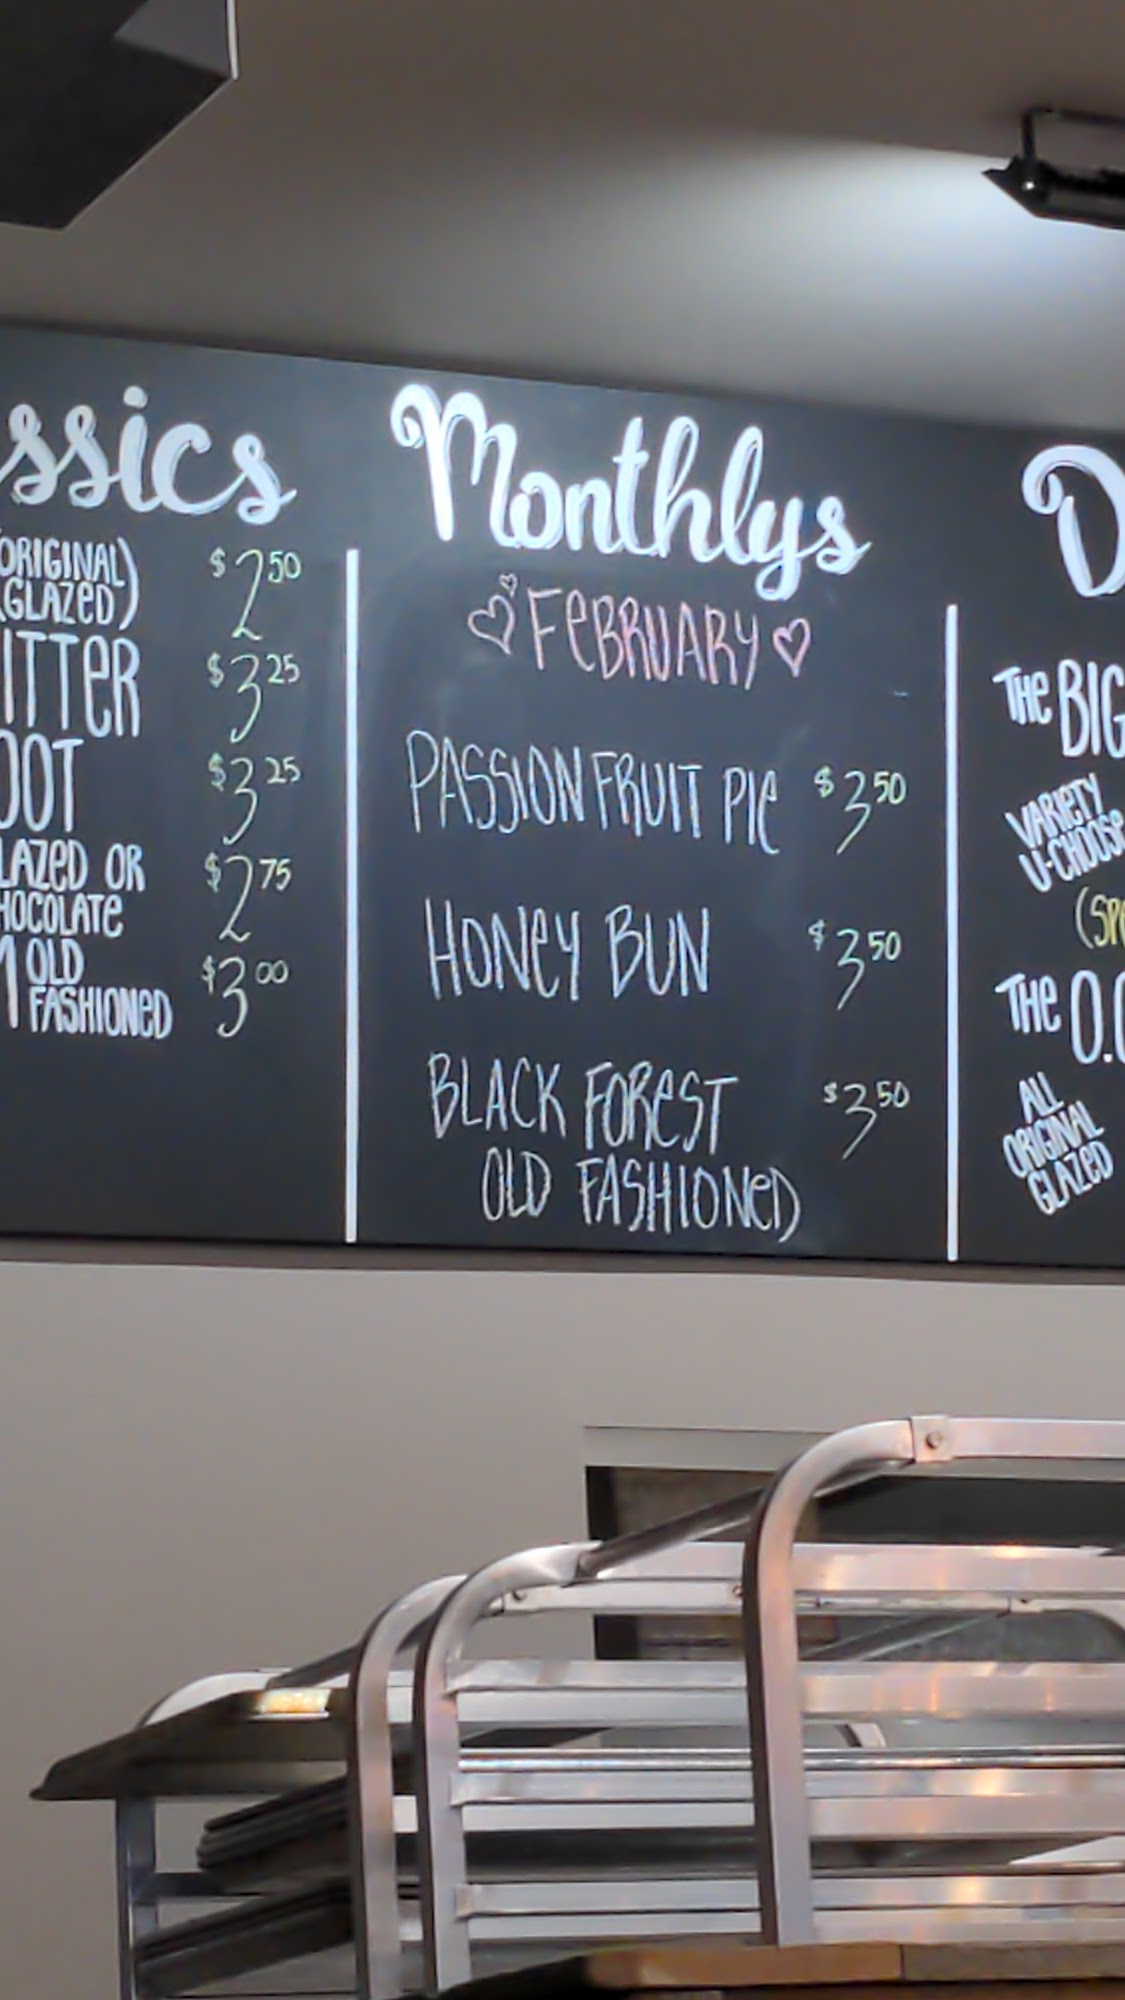 ssics
(ORIGINAL) $2.50
(GLAZED)
ITTER $3.25
OOT $3.25
LAZED OR $2.75
HOCOLATE
OLD $3.00
FASHIONED
Monthlys
FEBRUARY
PASSION FRUIT PIE $3.50
HONEY BUN $3.50
BLACK FOREST $3.50
OLD FASHIONED
D
THE BIG
VARIETY
U-CHOOSE
(SPE
THE O.G
ALL
ORIGINAL
GLAZED